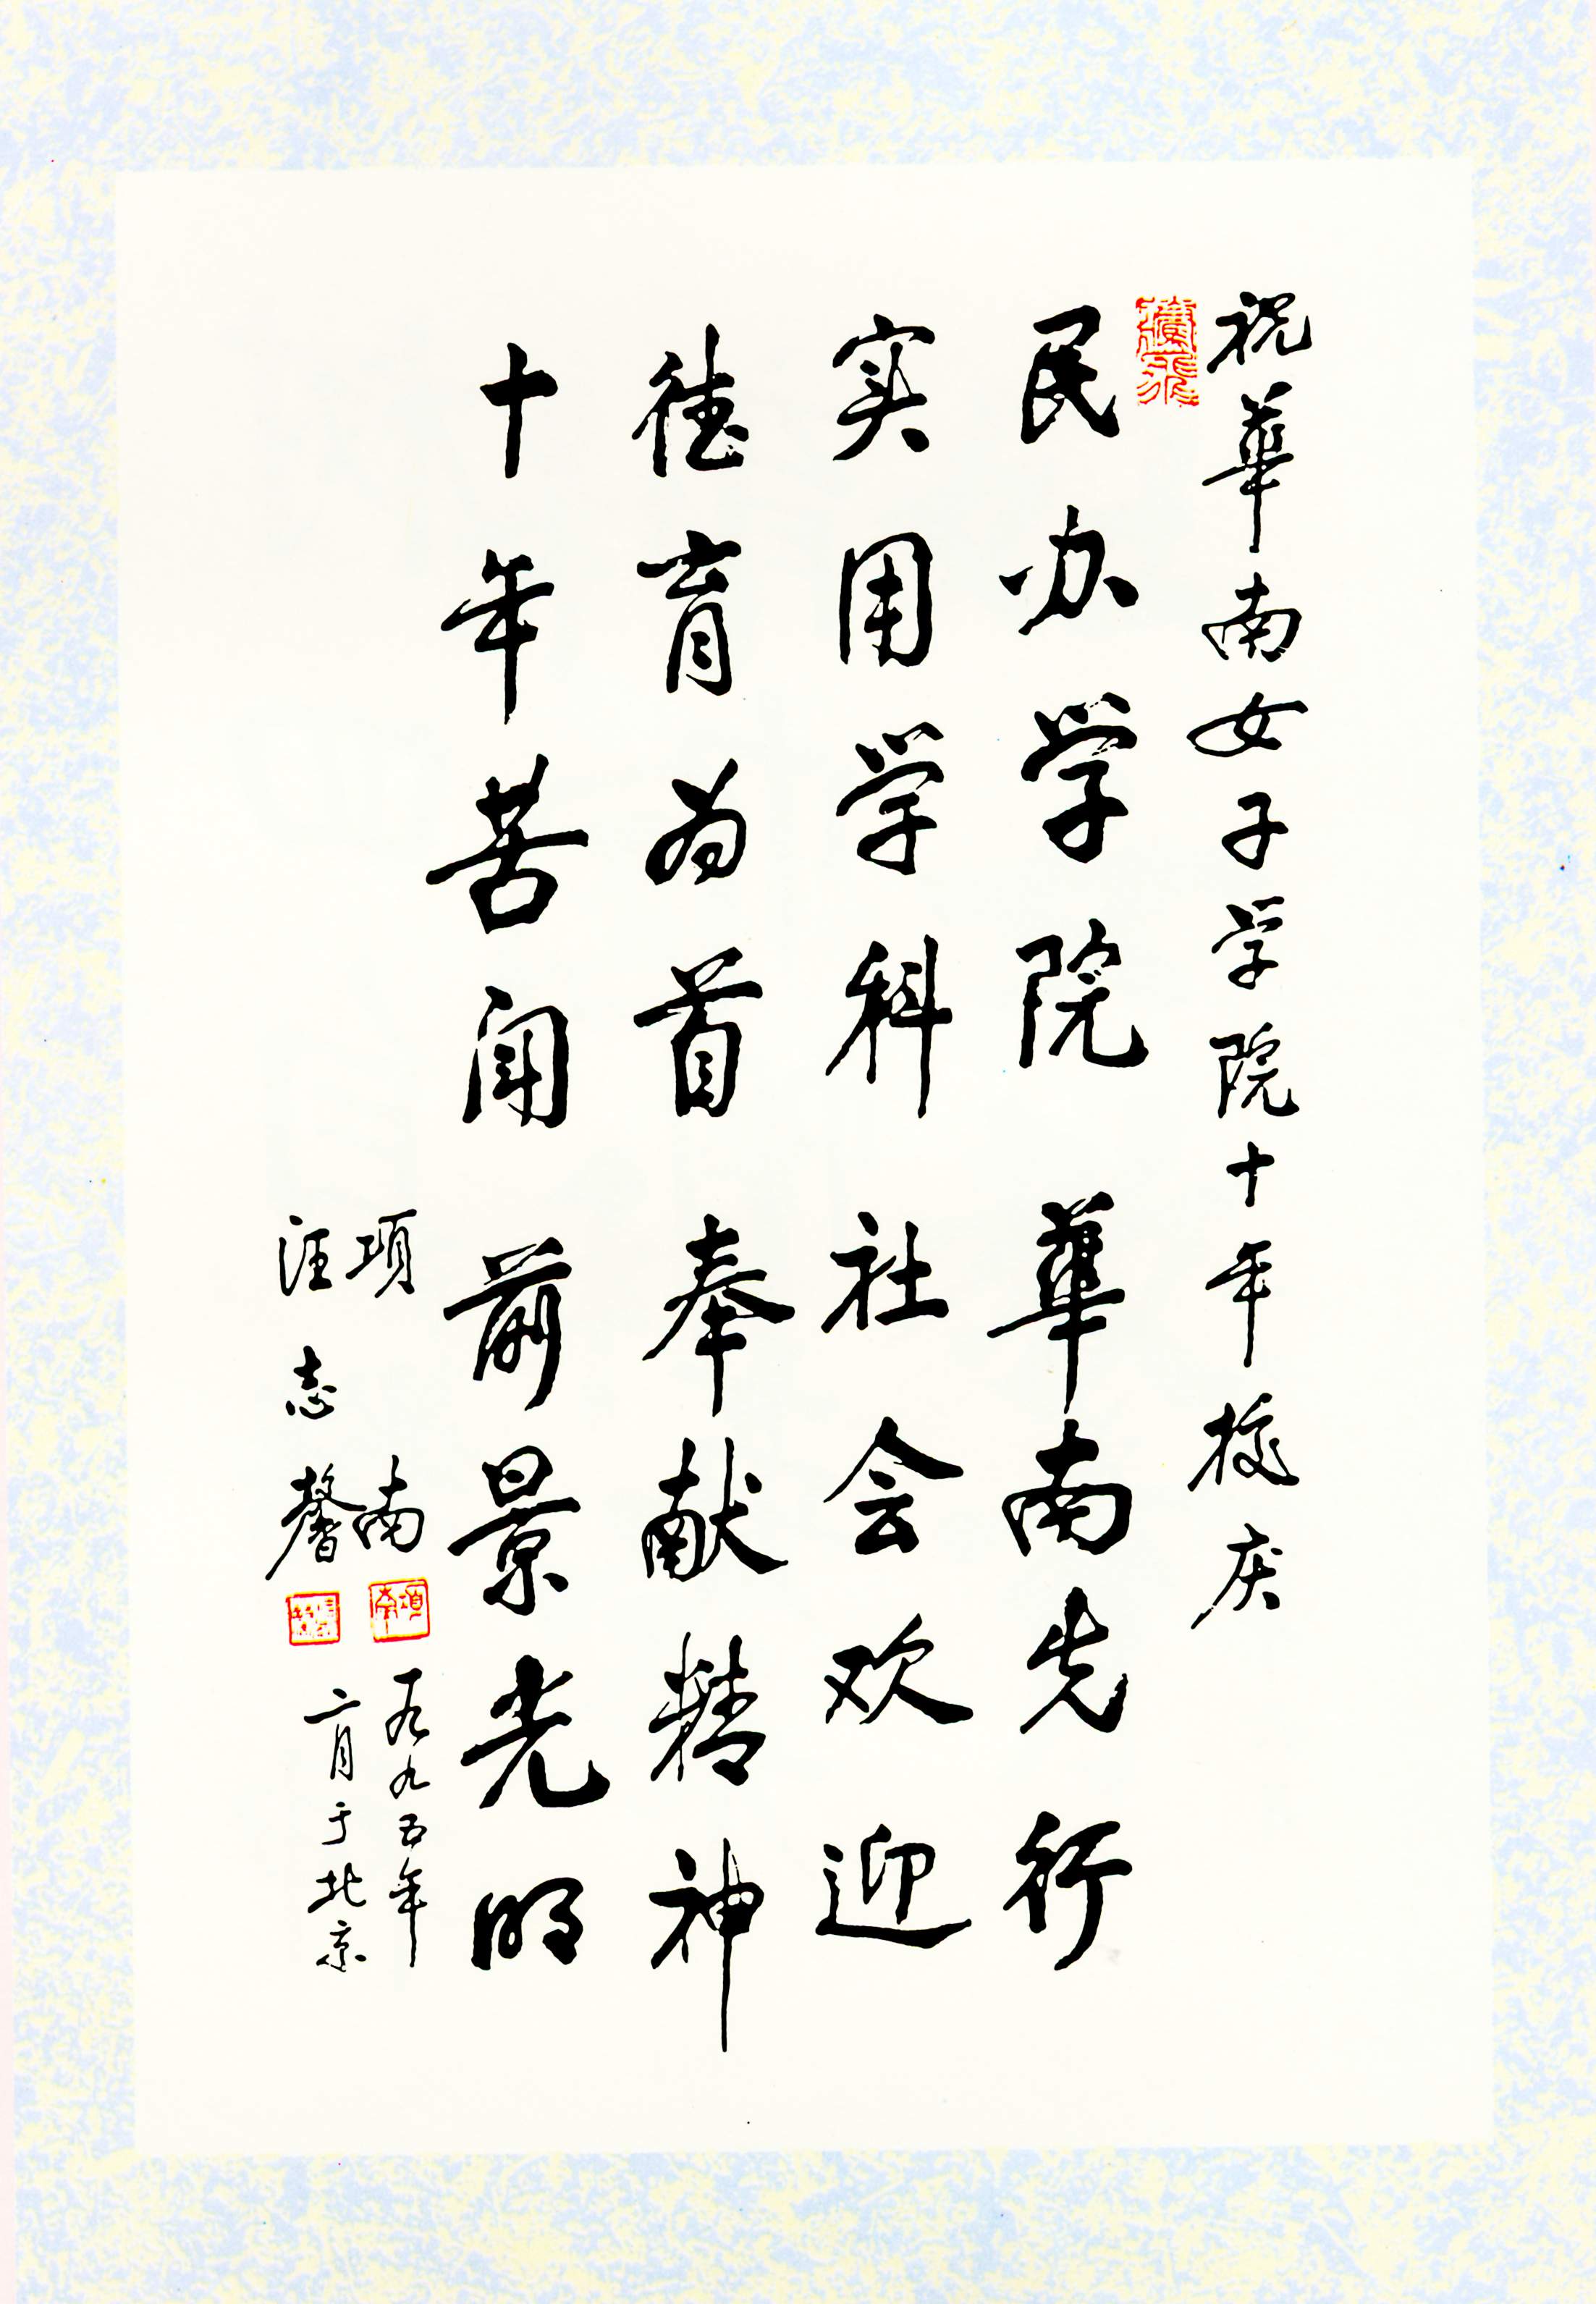 祝華南女子学院十年校庆
民办学院 華南先行
实用学科 社会欢迎
德育为首 奉献精神
十年苦闯 前景光明
項南 項南 一九九五年
汪志馨 二月于北京